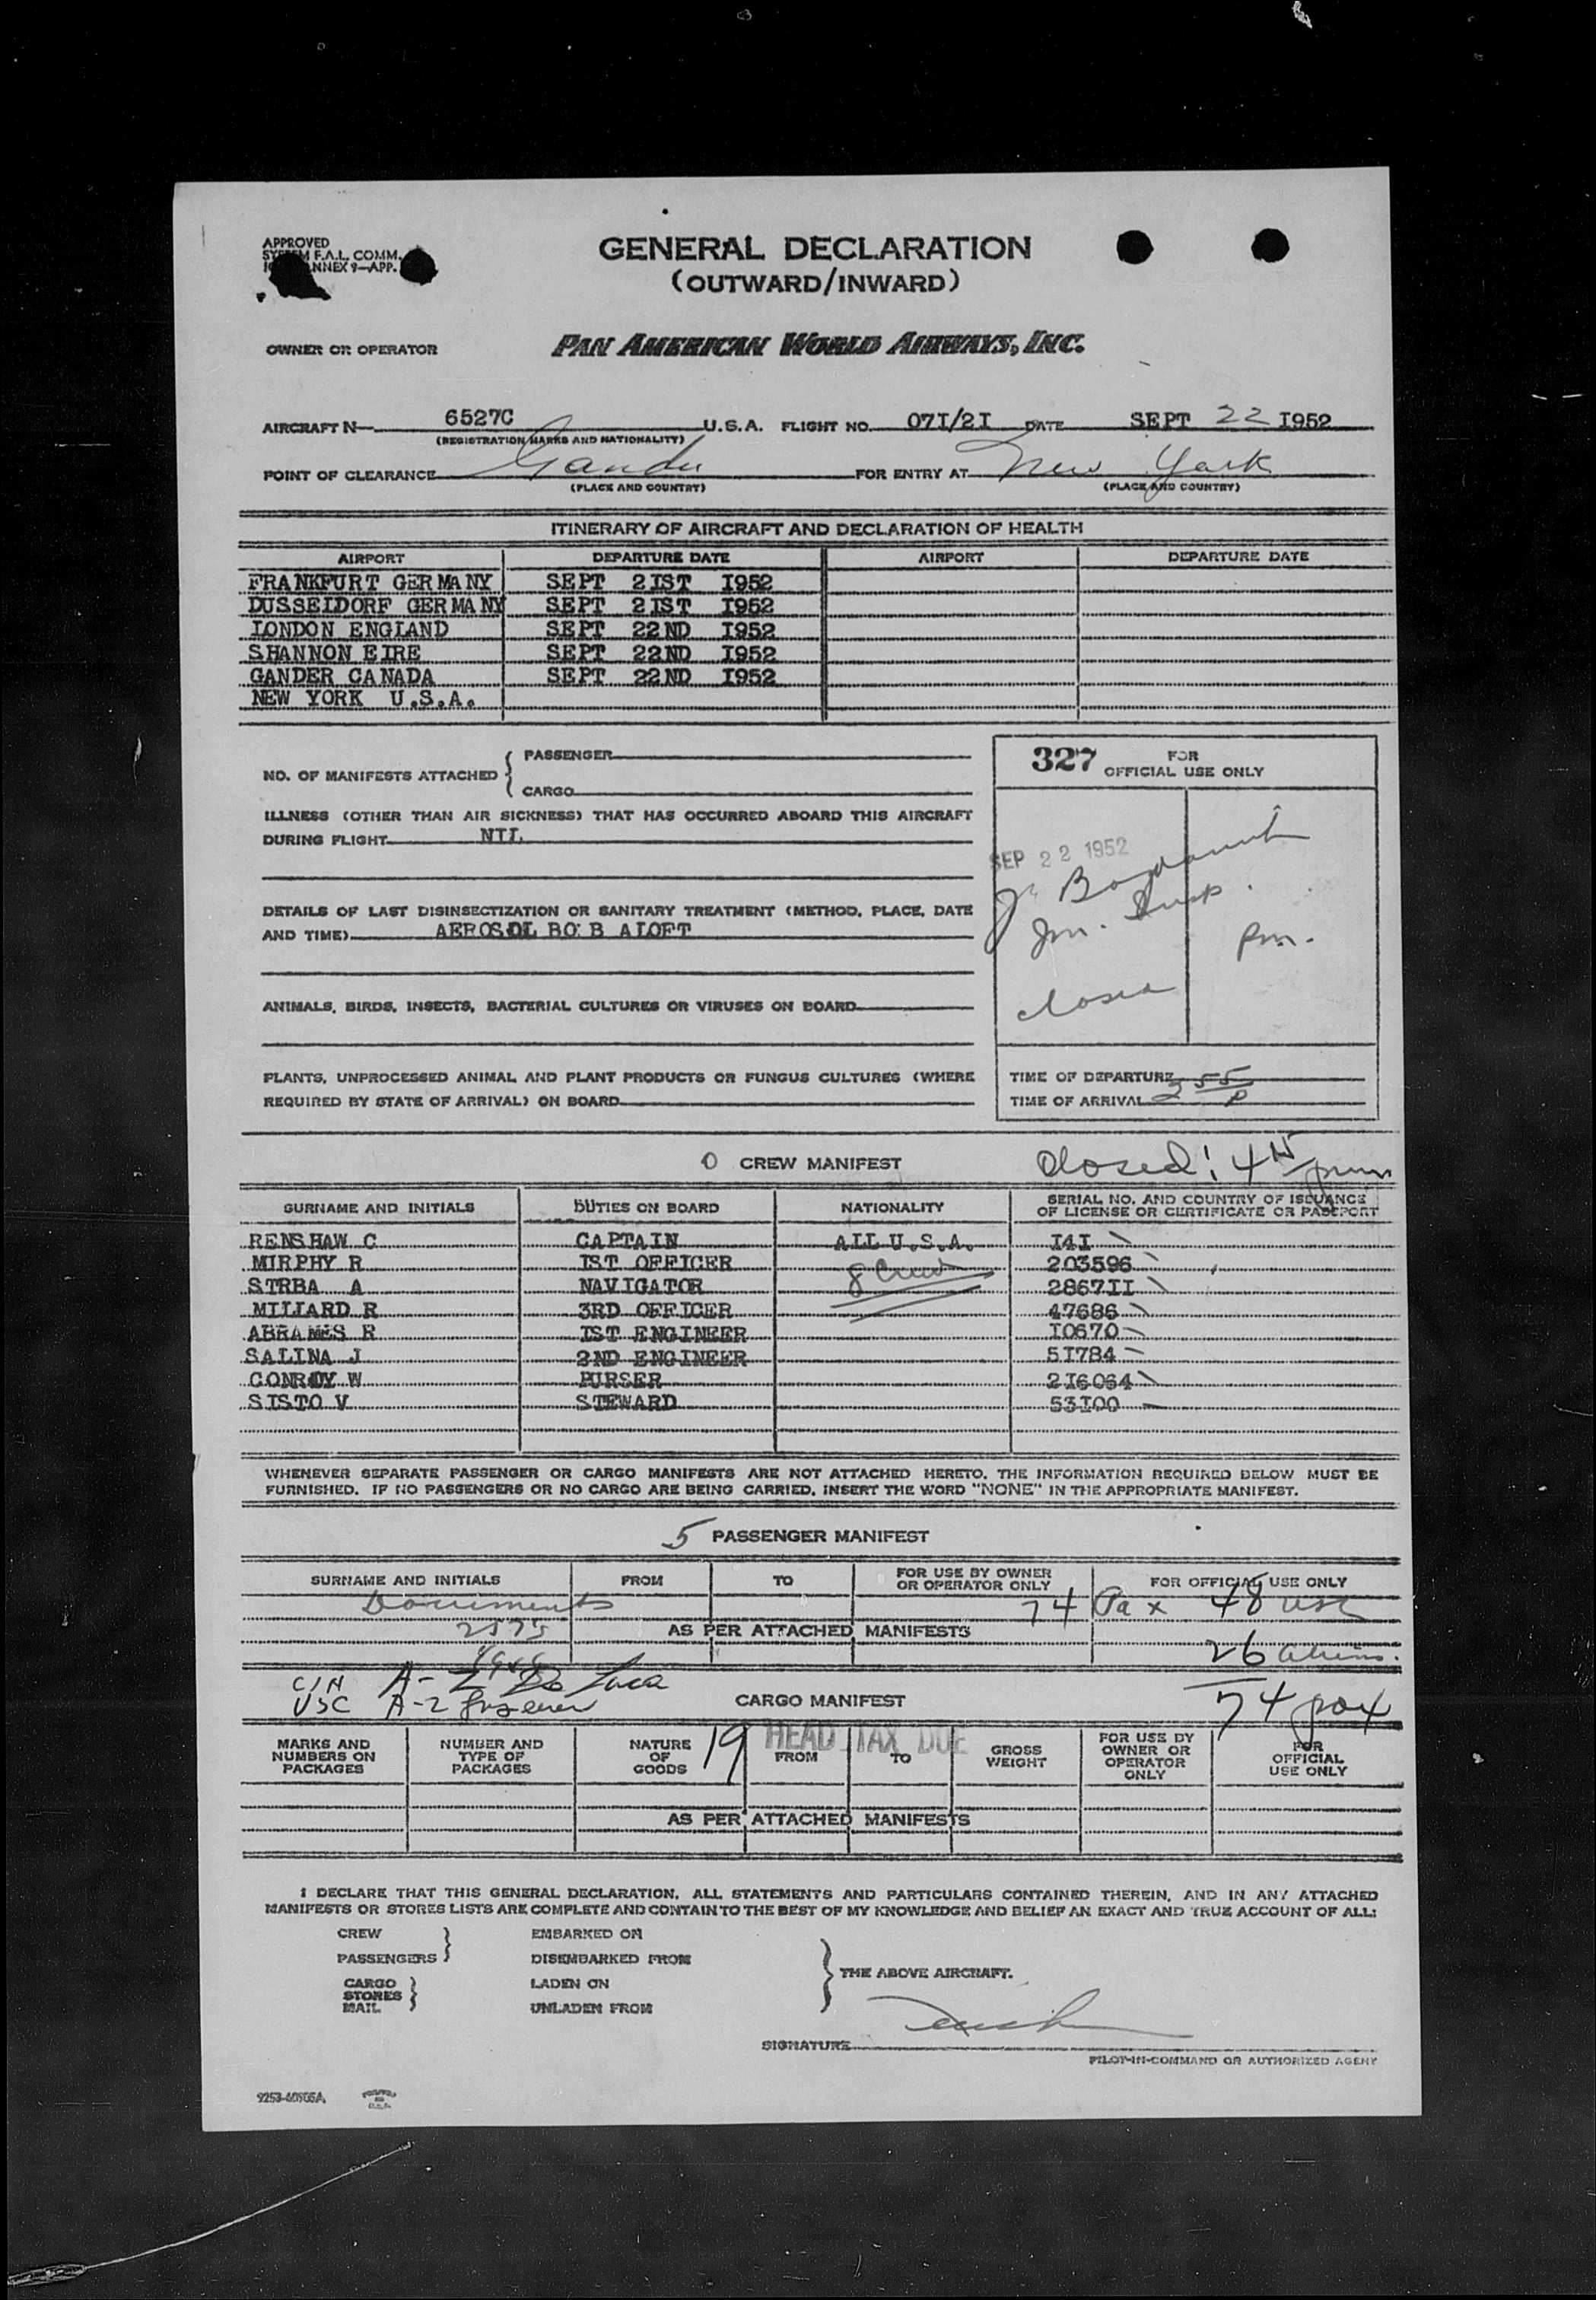 APPROVED
F.A.L. COMM.
ANNEX 9—APP.
GENERAL DECLARATION
(OUTWARD/INWARD)
OWNER OR OPERATOR PAN AMERICAN WORLD AIRWAYS, INC.
AIRCRAFT N— 6527C U.S.A. FLIGHT NO. 07I/2I DATE SEPT 22 I952
(REGISTRATION MARKS AND NATIONALITY)
POINT OF CLEARANCE Gander FOR ENTRY AT New York
(PLACE AND COUNTRY) (PLACE AND COUNTRY)
ITINERARY OF AIRCRAFT AND DECLARATION OF HEALTH
AIRPORT DEPARTURE DATE AIRPORT DEPARTURE DATE
FRANKFURT GERMANY SEPT 2IST I952
DUSSELDORF GERMANY SEPT 2IST I952
LONDON ENGLAND SEPT 22ND I952
SHANNON EIRE SEPT 22ND I952
GANDER CANADA SEPT 22ND I952
NEW YORK U.S.A.
NO. OF MANIFESTS ATTACHED { PASSENGER
CARGO
327 FOR
OFFICIAL USE ONLY
ILLNESS (OTHER THAN AIR SICKNESS) THAT HAS OCCURRED ABOARD THIS AIRCRAFT
DURING FLIGHT NIL
SEP 22 1952
Insp.
Im.
pm.
closed
DETAILS OF LAST DISINSECTIZATION OR SANITARY TREATMENT (METHOD, PLACE, DATE
AND TIME) AEROSOL BO B ALOFT
ANIMALS, BIRDS, INSECTS, BACTERIAL CULTURES OR VIRUSES ON BOARD
PLANTS, UNPROCESSED ANIMAL AND PLANT PRODUCTS OR FUNGUS CULTURES (WHERE
REQUIRED BY STATE OF ARRIVAL) ON BOARD
TIME OF DEPARTURE
TIME OF ARRIVAL 2 55 P
0 CREW MANIFEST closed: 4 15 pm
SURNAME AND INITIALS DUTIES ON BOARD NATIONALITY SERIAL NO. AND COUNTRY OF ISSUANCE
OF LICENSE OR CERTIFICATE OR PASSPORT
RENSHAW C CAPTAIN ALL U.S.A. I4I
MIRPHY R IST OFFICER 8 Crew 203596
STRBA A NAVIGATOR 2867II
MILLARD R 3RD OFFICER 47686
ABRAMES R IST ENGINEER I0670
SALINA J 2ND ENGINEER 5I784
CONROY W PURSER 2I6064
SISTO V STEWARD 53I00
WHENEVER SEPARATE PASSENGER OR CARGO MANIFESTS ARE NOT ATTACHED HERETO, THE INFORMATION REQUIRED BELOW MUST BE
FURNISHED. IF NO PASSENGERS OR NO CARGO ARE BEING CARRIED, INSERT THE WORD "NONE" IN THE APPROPRIATE MANIFEST.
5 PASSENGER MANIFEST
SURNAME AND INITIALS FROM TO FOR USE BY OWNER
OR OPERATOR ONLY FOR OFFICIAL USE ONLY
Documents 74 Pax 48 USC
2575 AS PER ATTACHED MANIFESTS
26 aliens.
C/N A- De Luca
USC A-2
CARGO MANIFEST 74 pax
HEAD TAX DUE
19
MARKS AND
NUMBERS ON
PACKAGES NUMBER AND
TYPE OF
PACKAGES NATURE
OF
GOODS FROM TO GROSS
WEIGHT FOR USE BY
OWNER OR
OPERATOR
ONLY FOR
OFFICIAL
USE ONLY
AS PER ATTACHED MANIFESTS
I DECLARE THAT THIS GENERAL DECLARATION, ALL STATEMENTS AND PARTICULARS CONTAINED THEREIN, AND IN ANY ATTACHED
MANIFESTS OR STORES LISTS ARE COMPLETE AND CONTAIN TO THE BEST OF MY KNOWLEDGE AND BELIEF AN EXACT AND TRUE ACCOUNT OF ALL:
CREW EMBARKED ON
PASSENGERS } DISEMBARKED FROM
THE ABOVE AIRCRAFT.
CARGO
STORES
MAIL } LADEN ON
UNLADEN FROM
SIGNATURE
PILOT-IN-COMMAND OR AUTHORIZED AGENT
PRINTED
IN
U.S.A.